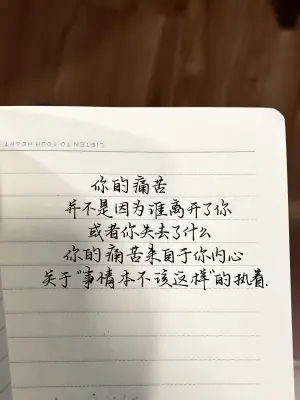 LISTEN TO YOUR HEART
你的痛苦
并不是因为谁离开了你
或者你失去了什么
你的痛苦来自于你内心
关于"事情本不该这样"的执着.